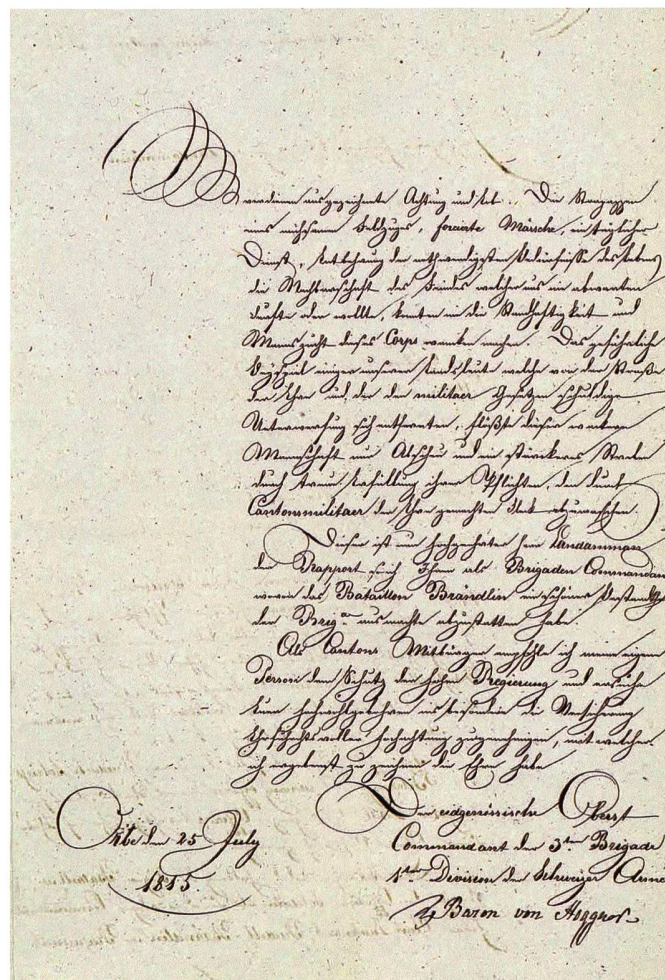 verdienen ausgezeichnete Achtung und Lob. Die Strapazzen
eines mühsamen Feldzuges, forcirte Märsche, ein täglicher
Dienst, Entbehrung der nothwendigsten Bedürfnisse des Lebens
die Nachbarschaft des Feindes welcher uns nie abwarten
durfte oder wollte, konten nie die Standhaftigkeit und
Mannszucht dieses Corps wanken machen. Das gefährliche
Beyspiel einiger unserer Landsleute welche von der Strasse
der Ehre und der den militaer Gesetzen schuldigen
Unterwerfung sich entfernten, flösste dieser wackern
Mannschaft nur Abscheu und ein stärckeres Streben
durch treue Erfüllung ihrer Pflichten, den dem
Cantonsmilitaer der Ehre gemachten Fleck abzuwaschen.
Dieser ist nun hochgeehrter Herr Landammann
der Rapport so ich Ihnen als Brigaden Commandant
wovon das Bataillon Brändlin ein schöner Bestandtheil
der Brig. ausmachte abzustatten habe.
Als Cantons Mitbürger empfehle ich meine eigene
Person dem Schutz der hohen Regierung und ersuche
die Versicherung
Hochachtung zu genehmigen, mit welcher
ich ergebenst zu zeichnen die Ehre habe
Der eidgenössische Oberst
Orbe den 25 July
Commandant der 3ten Brigade
1815.
1ten Division der Schweizer Armee
Baron von Hoggers